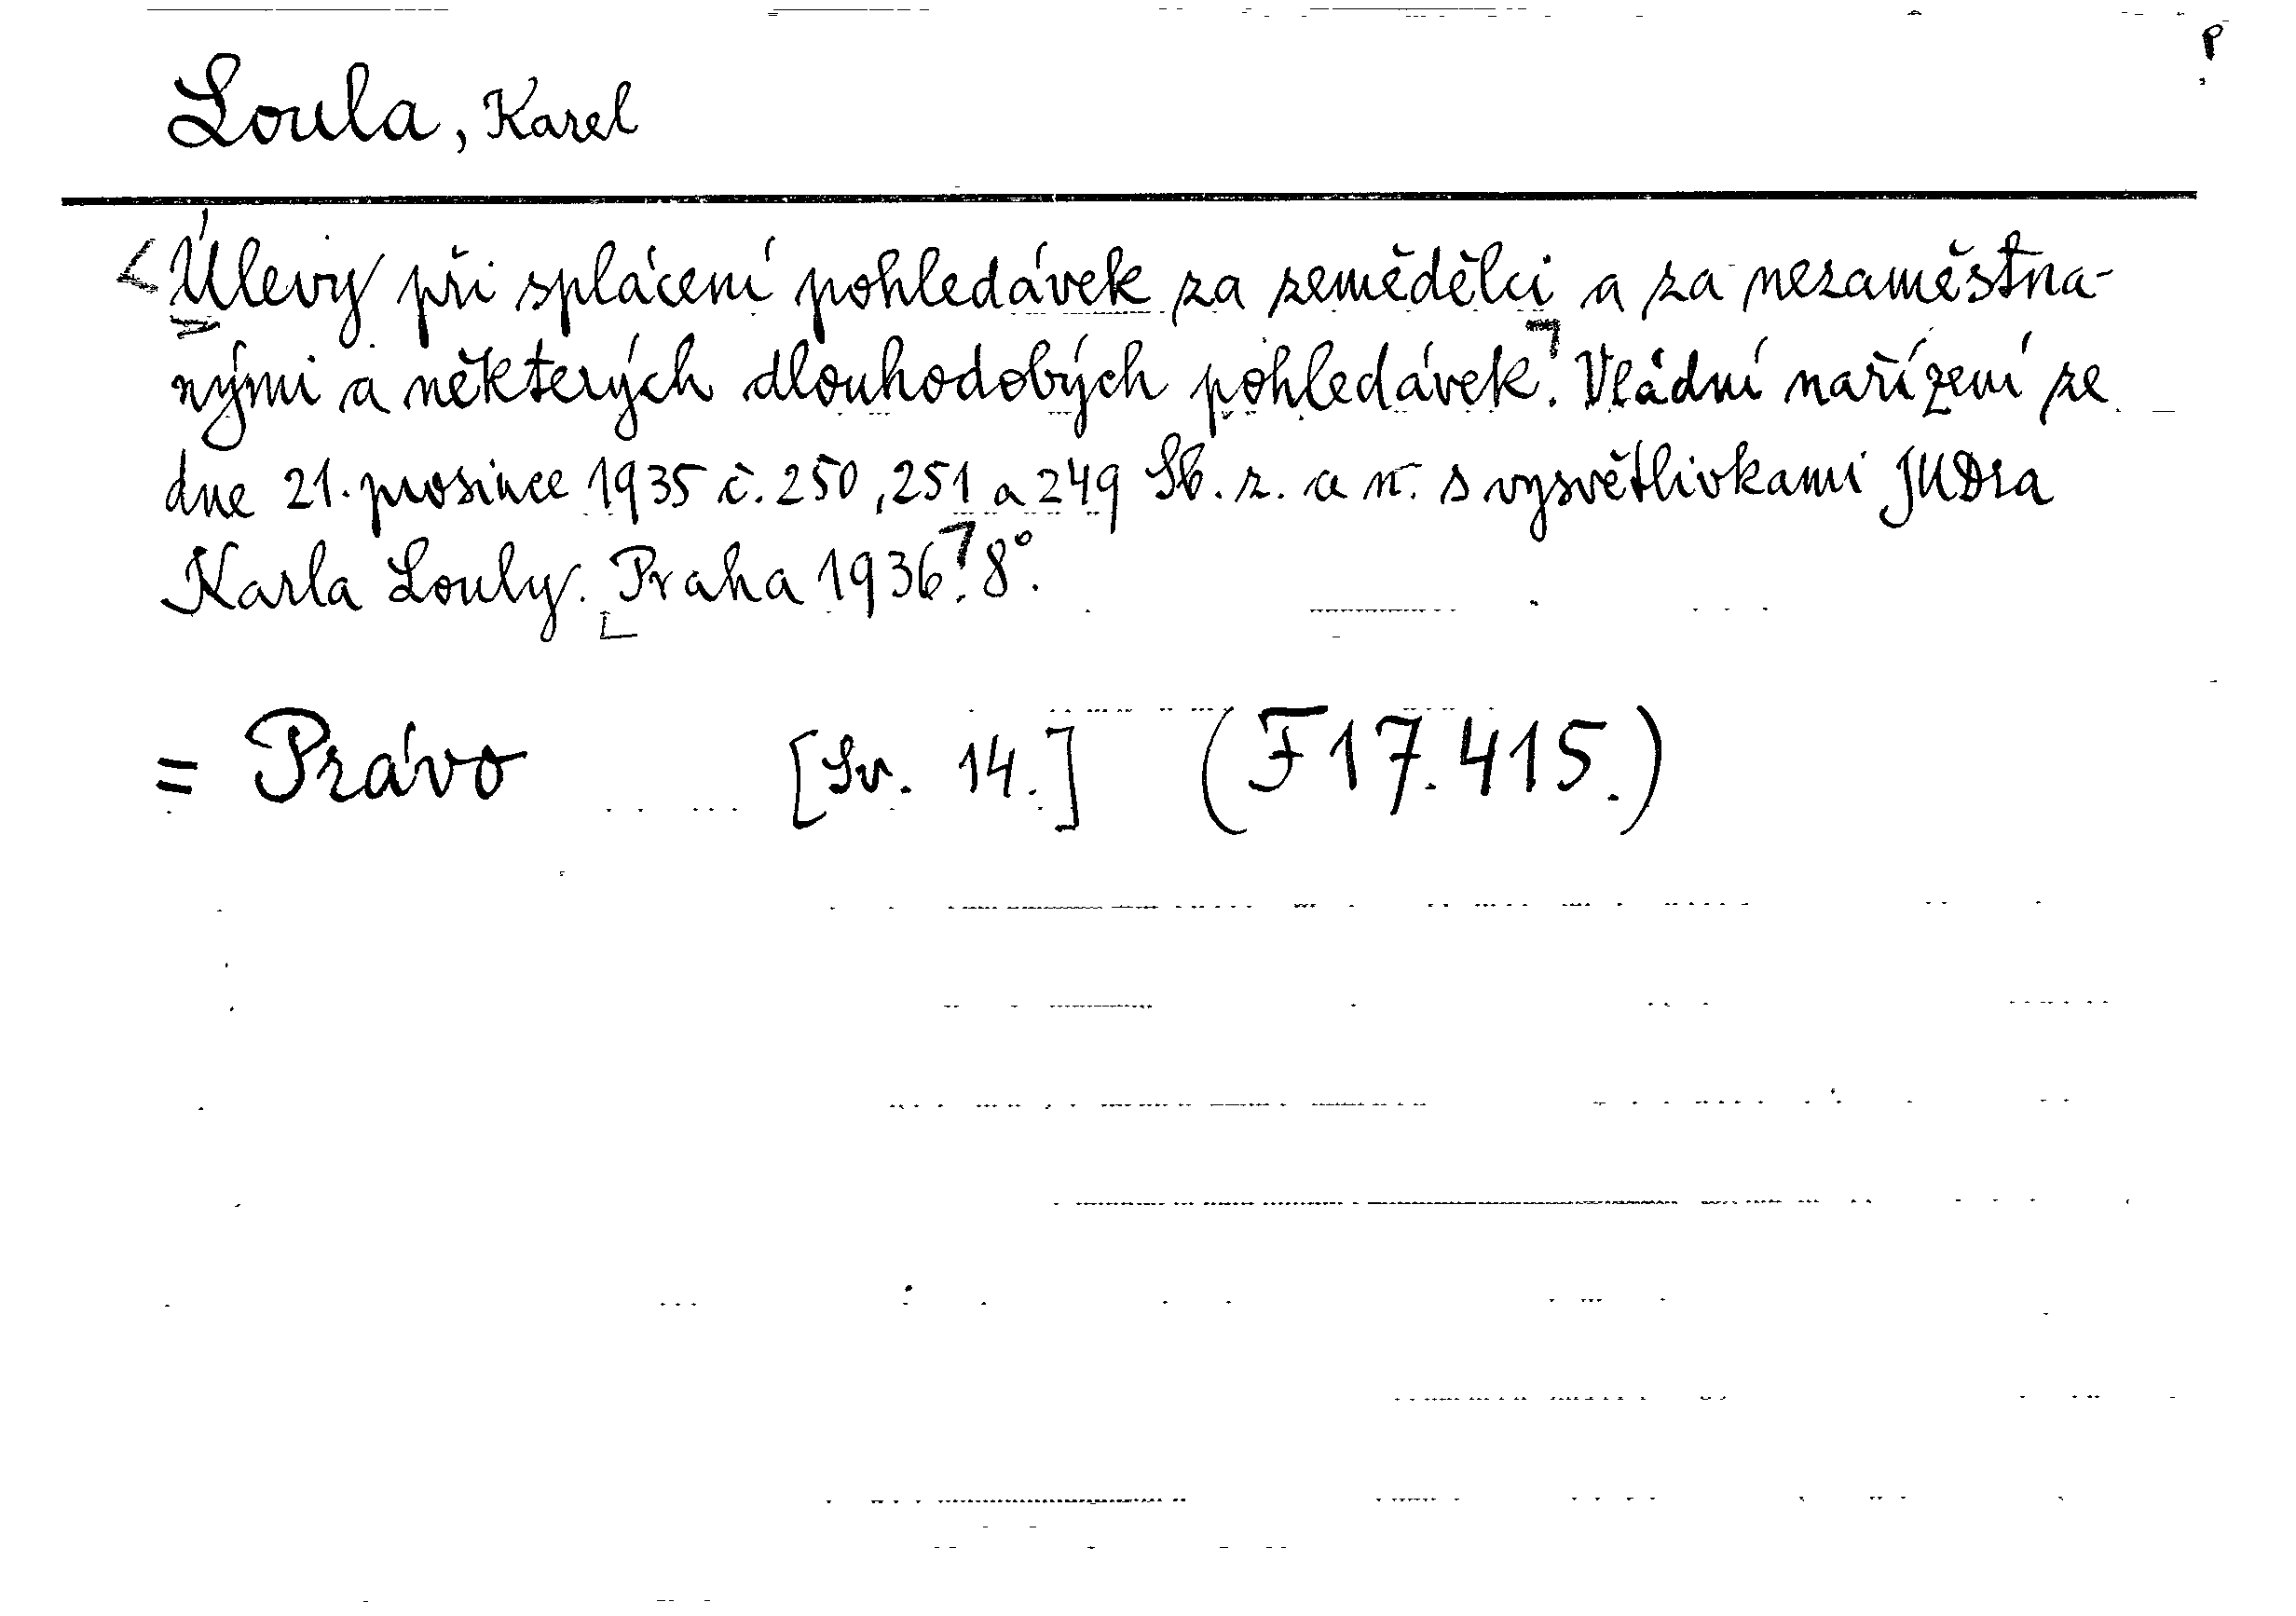 P
Loula, Karel
Úlevy při splácení pohledávek za zemědělci a za nezaměstna-
nými a některých dlouhodobých pohledávek. Vládní nařízení ze
dne 21. prosince 1935 č. 250, 251 a 249 Sb. z. a n. s vysvětlivkami JUDra
Karla Louly. Praha 1936. 8°.
= Právo [Sv. 14.] (F 17.415.)